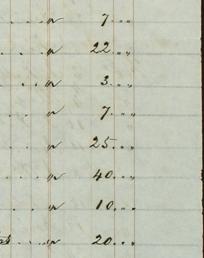 " 7 . . .
" 22 . . .
" 3 . . .
" 7 . . .
" 25 . . .
" 40 . . .
" 10 . . .
" 20 . . .